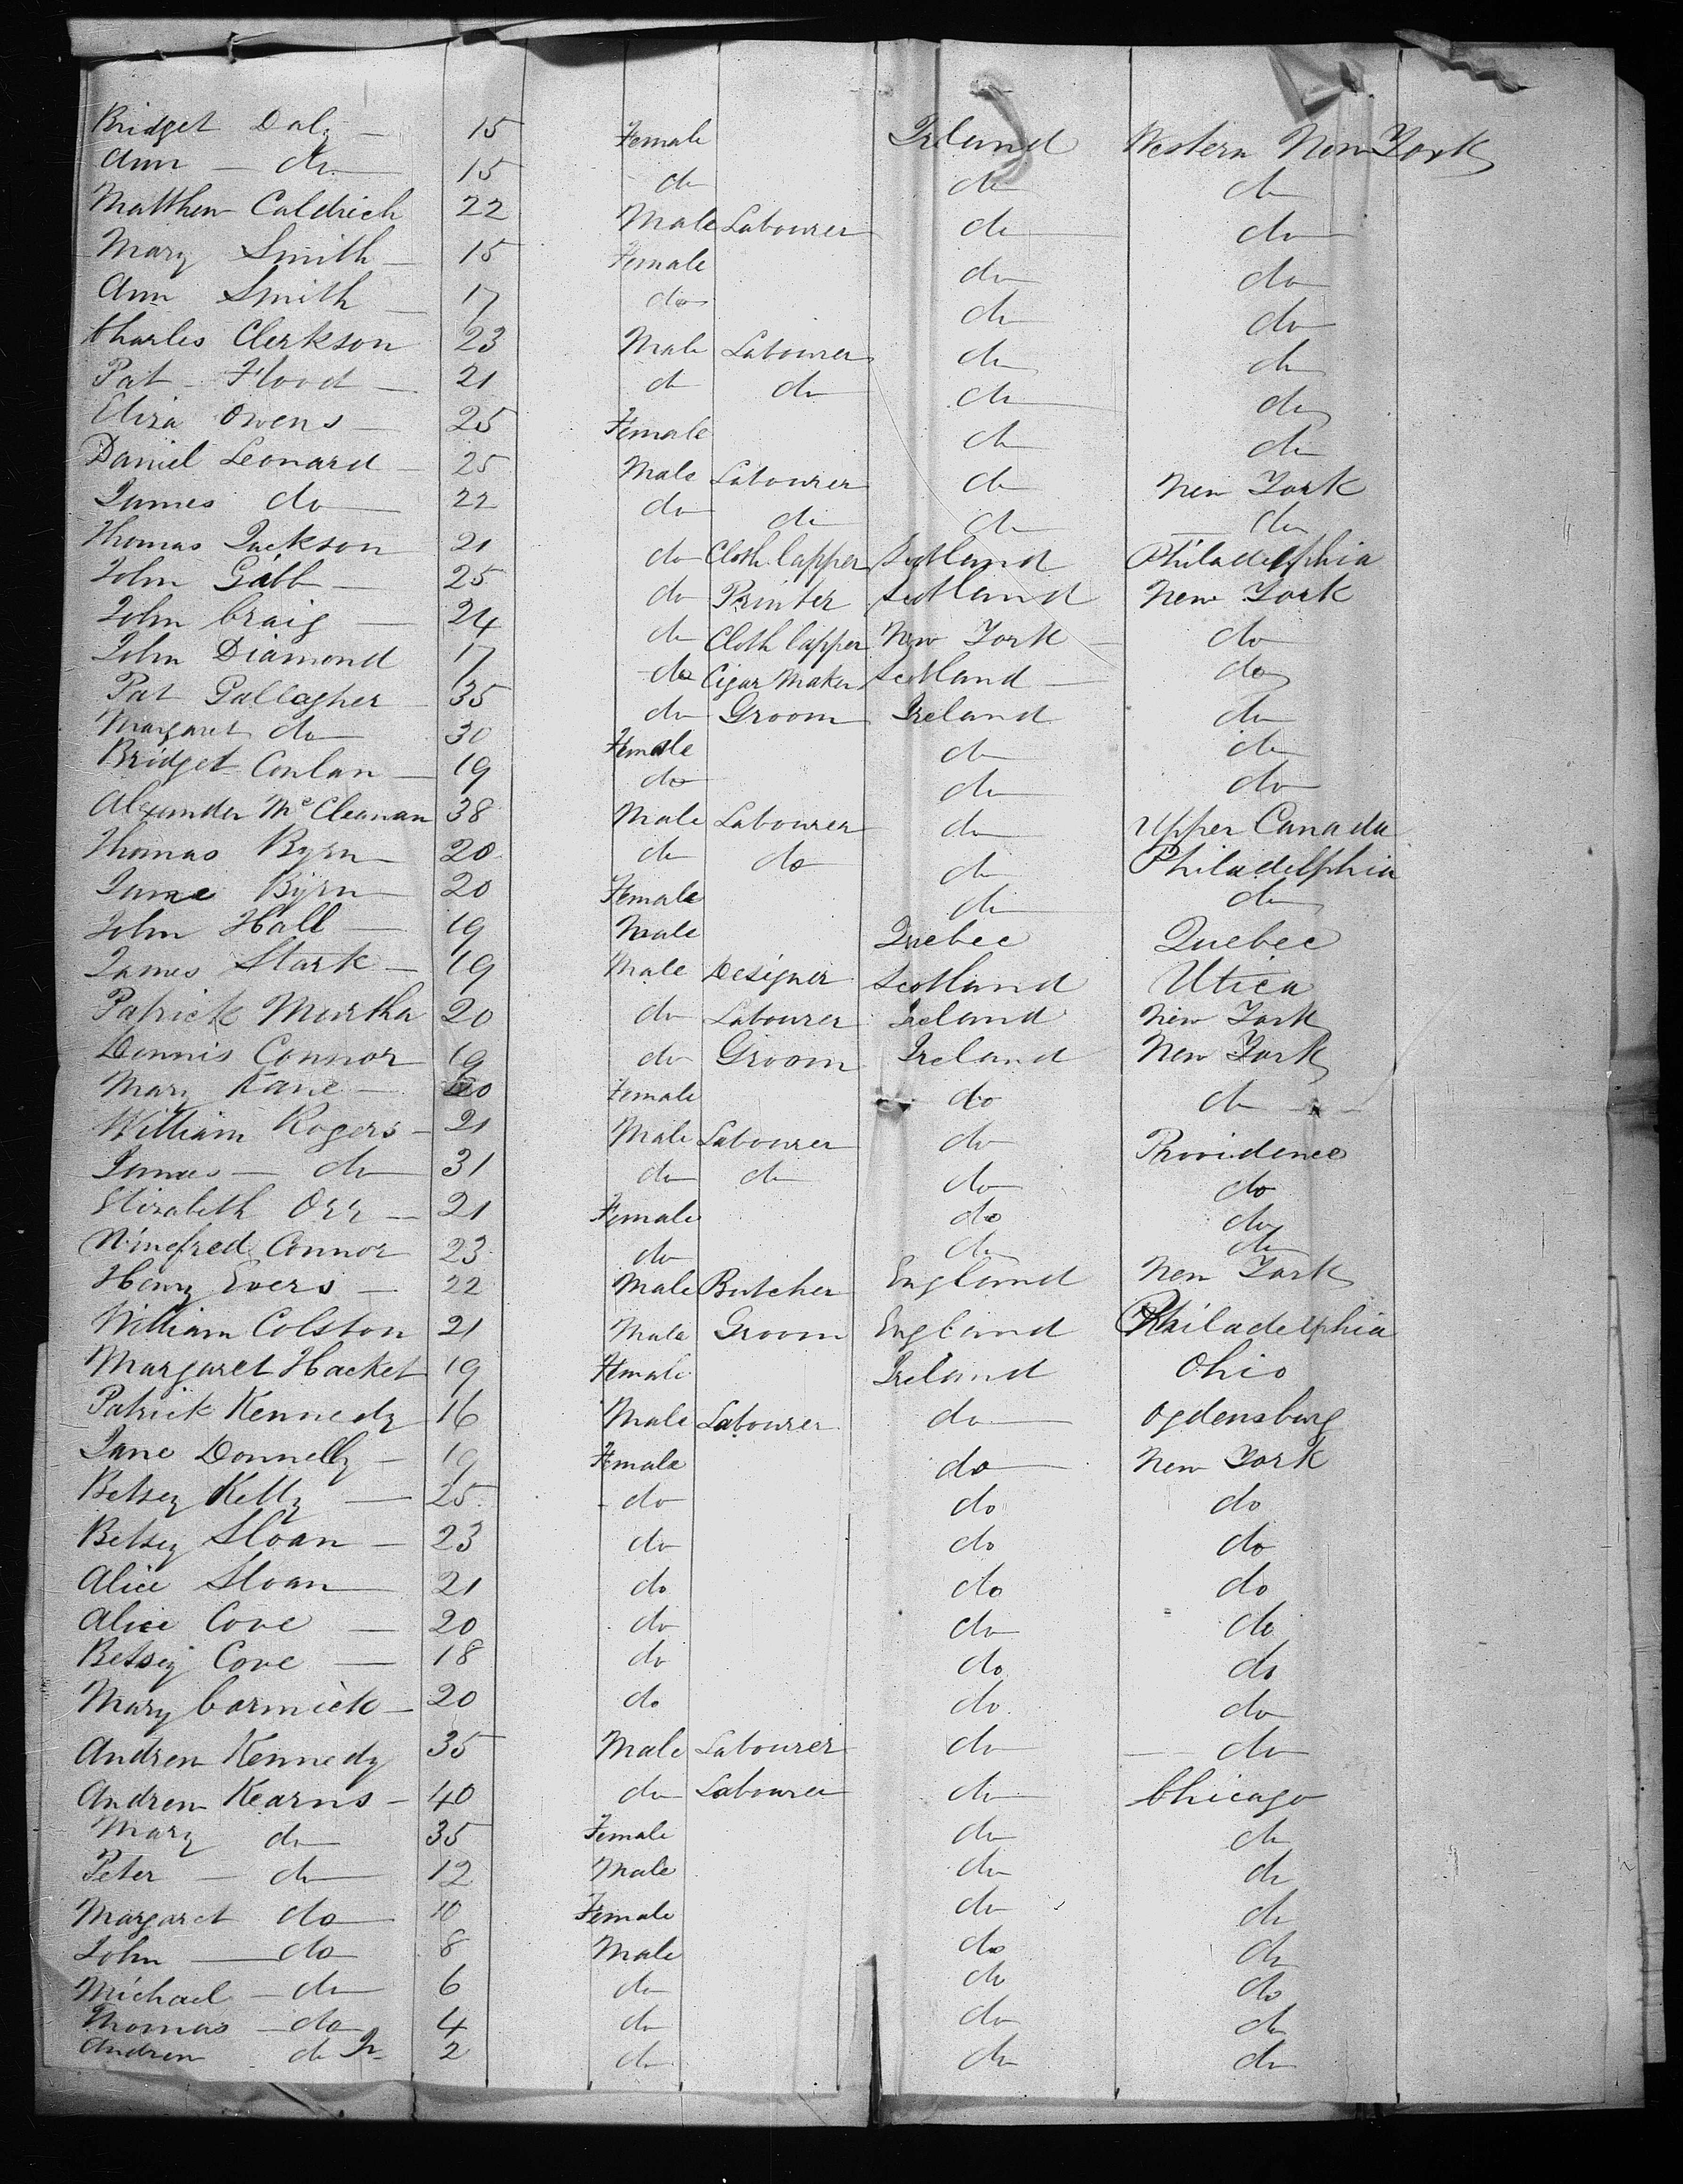 Bridget Daly — 15 Female Ireland Western New York
Ann — do — 15 do do do
Matthew Caldrich 22 Male Labourer do do
Mary Smith — 15 Female do do
Ann Smith — 17 do do do
Charles Clerkson 23 Male Labourer do do
Pat Flood — 21 do do do do
Eliza Owens — 25 Female do do
Daniel Leonard — 25 Male Labourer do New York
James do — 22 do do do do
Thomas Jackson 21 do Cloth lapper Scotland Philadelphia
John Gibb — 25 do Printer Scotland New York
John Craig — 24 do Cloth lapper New York — do
John Diamond 17 do Cigar Maker Scotland — do
Pat Gallagher — 35 do Groom Ireland do
Margaret do — 30 Female do do
Bridget Conlan — 19 do do do
Alexander McCleanan 38 Male Labourer do Upper Canada
Thomas Byrn — 20 do do do Philadelphia
Jane Byrn — 20 Female do do
John Hall — 19 Male Quebec Quebec
James Stark — 19 Male Designer Scotland Utica
Patrick Murtha 20 do Labourer Ireland New York
Dennis Connor 19 do Groom Ireland New York
Mary Kane — 20 Female do do
William Rogers — 21 Male Labourer do Providence
James — do 31 do do do do
Elizabeth Orr — 21 Female do do
Winefred Connor 23 do do do
Henry Evers — 22 Male Butcher England New York
William Colston 21 Male Groom England Philadelphia
Margaret Hacket 19 Female Ireland Ohio
Patrick Kennedy 16 Male Labourer do Ogdensburg
Jane Donnelly — 19 Female do New York
Betsey Kelly — 25 do do do
Betsey Sloan — 23 do do do
Alice Sloan 21 do do do
Alice Cove — 20 do do do
Betsey Cove — 18 do do do
Mary Cormick — 20 do do do
Andrew Kennedy 35 Male Labourer do do
Andrew Kearns — 40 do Labourer do Chicago
Mary do 35 Female do do
Peter — do 12 Male do do
Margaret do 10 Female do do
John — do 8 Male do do
Michael — do 6 do do do
Thomas — do 4 do do do
Andrew do Jr 2 do do do